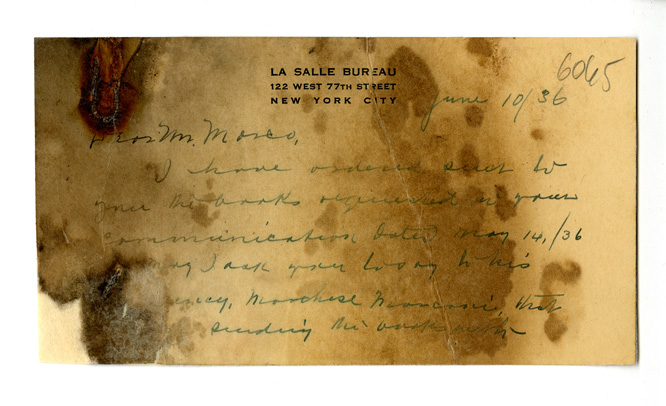 LA SALLE BUREAU
122 WEST 77TH STREET
NEW YORK CITY
6065
June 10/36
Dear Mr. Mosco,
I have ordered sent to
you the books requested in your
communication dated May 14,/36
I ask you to say to his
Marchese
sending the books with